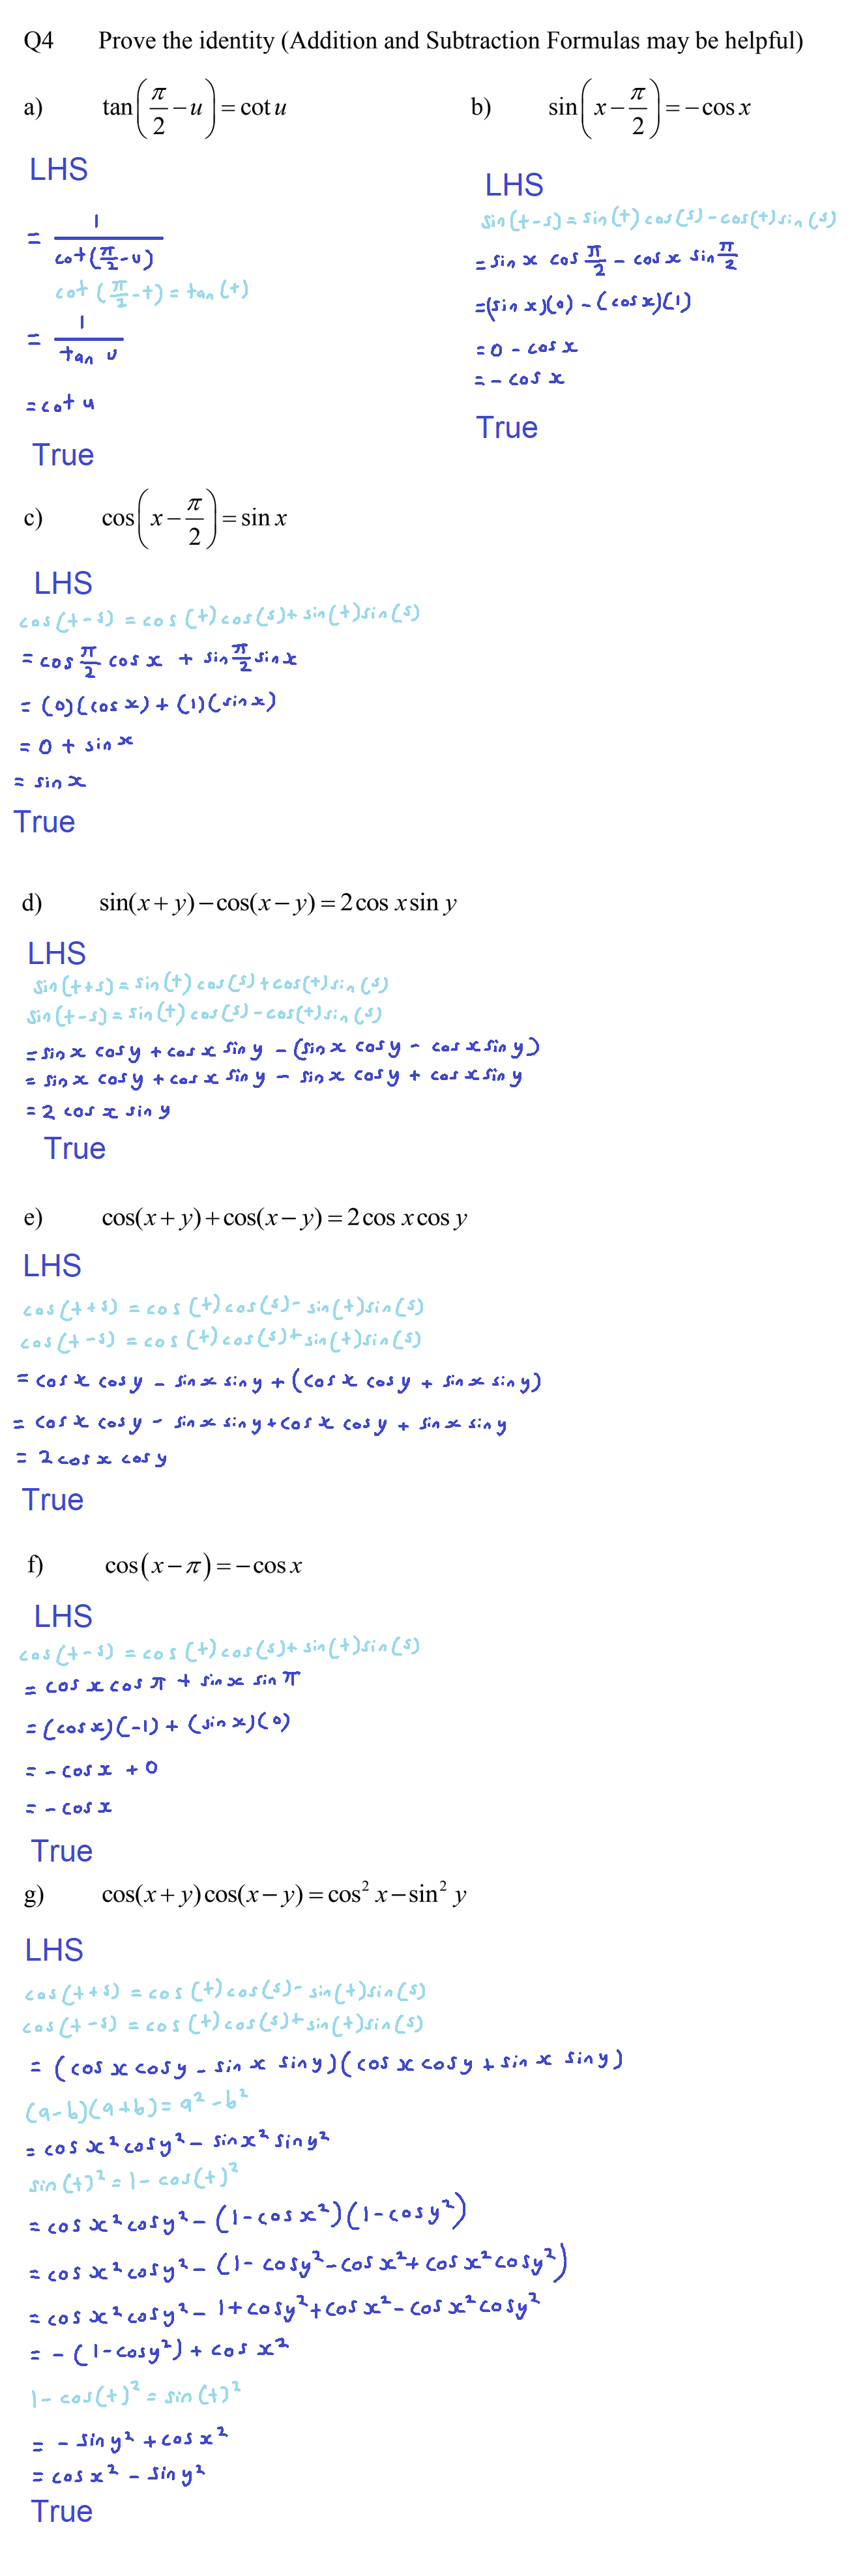 Q4 Prove the identity (Addition and Subtraction Formulas may be helpful)
a) tan(π/2 − u) = cot u
b) sin(x − π/2) = − cos x
LHS
= 1/cot(π/2 − u)
cot(π/2 − t) = tan(t)
= 1/tan u
= cot u
True
LHS
sin(t−s) = sin(t) cos(s) − cos(t) sin(s)
= sin x cos π/2 − cos x sin π/2
= (sin x)(0) − (cos x)(1)
= 0 − cos x
= − cos x
True
c) cos(x − π/2) = sin x
LHS
cos(t−s) = cos(t)cos(s) + sin(t)sin(s)
= cos π/2 cos x + sin π/2 sin x
= (0)(cos x) + (1)(sin x)
= 0 + sin x
= sin x
True
d) sin(x + y) − cos(x − y) = 2 cos x sin y
LHS
sin(t+s) = sin(t) cos(s) + cos(t) sin(s)
sin(t−s) = sin(t) cos(s) − cos(t) sin(s)
= sin x cos y + cos x sin y − (sin x cos y − cos x sin y)
= sin x cos y + cos x sin y − sin x cos y + cos x sin y
= 2 cos x sin y
True
e) cos(x + y) + cos(x − y) = 2 cos x cos y
LHS
cos(t+s) = cos(t)cos(s) − sin(t)sin(s)
cos(t−s) = cos(t)cos(s) + sin(t)sin(s)
= cos x cos y − sin x sin y + (cos x cos y + sin x sin y)
= cos x cos y − sin x sin y + cos x cos y + sin x sin y
= 2 cos x cos y
True
f) cos(x − π) = − cos x
LHS
cos(t−s) = cos(t)cos(s) + sin(t)sin(s)
= cos x cos π + sin x sin π
= (cos x)(−1) + (sin x)(0)
= − cos x + 0
= − cos x
True
g) cos(x + y) cos(x − y) = cos² x − sin² y
LHS
cos(t+s) = cos(t)cos(s) − sin(t)sin(s)
cos(t−s) = cos(t)cos(s) + sin(t)sin(s)
= (cos x cos y − sin x sin y)(cos x cos y + sin x sin y)
(a−b)(a+b) = a² − b²
= cos x² cos y² − sin x² sin y²
sin(t)² = 1 − cos(t)²
= cos x² cos y² − (1 − cos x²)(1 − cos y²)
= cos x² cos y² − (1 − cos y² − cos x² + cos x² cos y²)
= cos x² cos y² − 1 + cos y² + cos x² − cos x² cos y²
= − (1 − cos y²) + cos x²
1 − cos(t)² = sin(t)²
= − sin y² + cos x²
= cos x² − sin y²
True